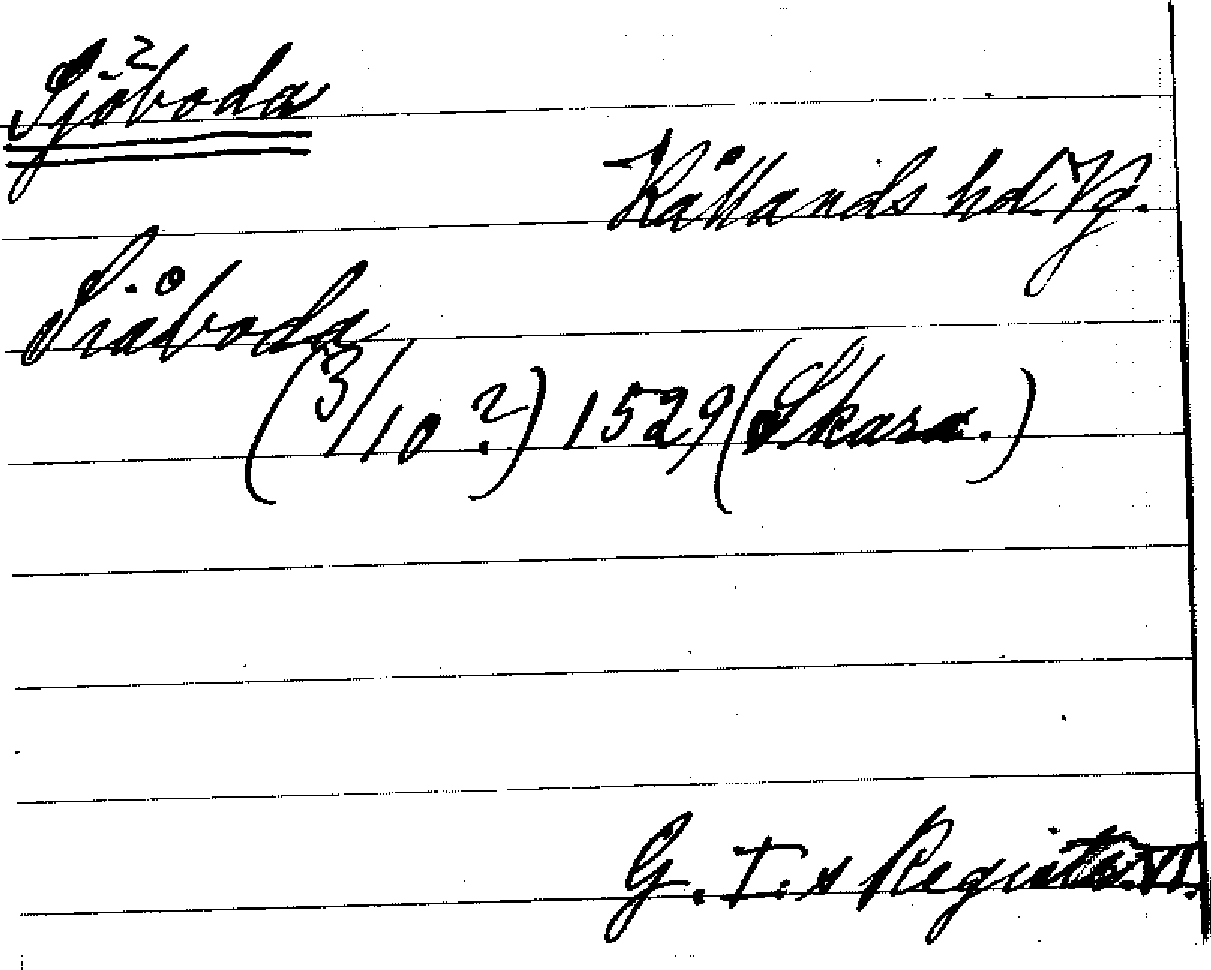 Sjöboda
Kållands hd. Vg.
Siåboda
(3/10 ?) 1529 (Skara.)
G. I. s Registr. VI.